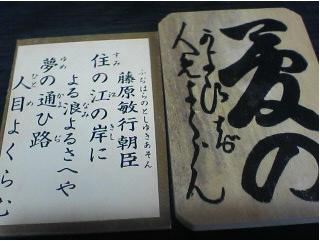 夢の
ふぢはらのとしゆきあそん
藤原敏行朝臣
すみ え きし
住の江の岸に
なみ
よる浪よるさへや
ゆめ かよ ぢ
夢の通ひ路
ひとめ
人目よくらむ